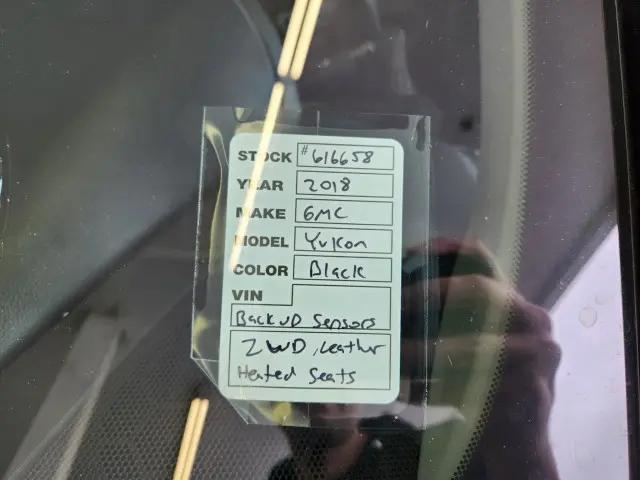 STOCK #616658
YEAR 2018
MAKE GMC
MODEL Yukon
COLOR Black
VIN
Backup Sensors
2WD, Leather
Heated Seats